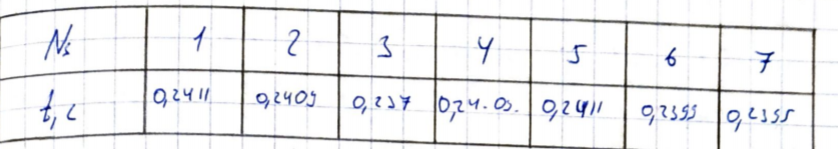 № 1 2 3 4 5 6 7
t, c 0,2411 0,2409 0,237 0,24.03. 0,2411 0,2399 0,2395